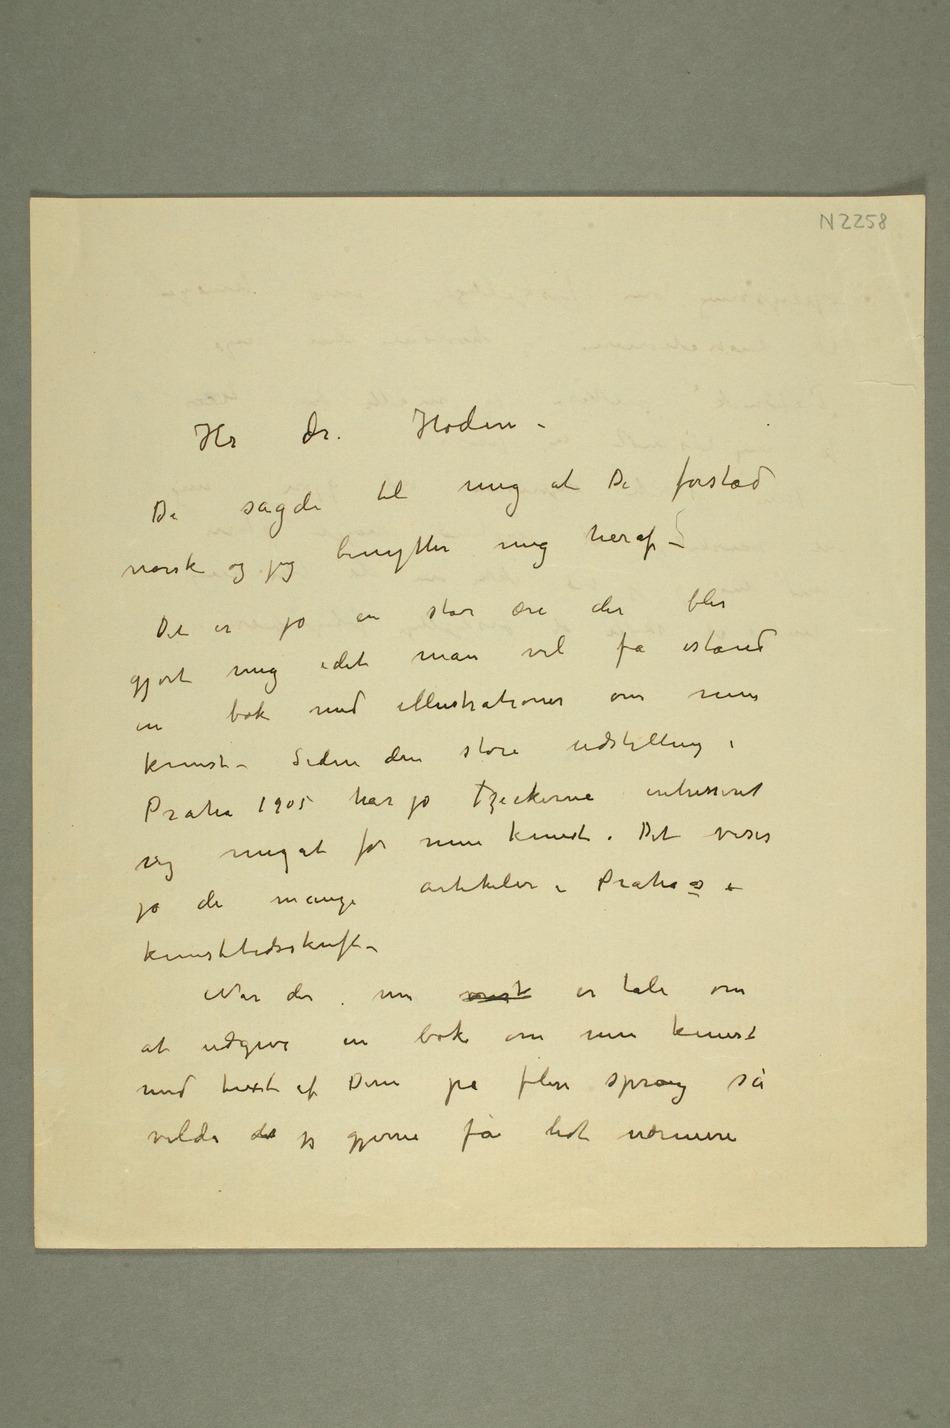 N 2258
Hr dr. Hodin –
De sagde til mig at De forstod
norsk og jeg benytter mig heraf –
Det er jo en stor ære der blir
gjort mig idet man vil få istand
en bok med illustrationer om min
kunst – Siden den store udstilling i
Praha 1905 har jo Tzeckerne intresseret
sig meget for min kunst. Det viser
jo de mange artikeler i Prahas
kunsttidsskrift –
Når der nu er tale om
at udgive en bok om min kunst
med text af Dem på flere sprog så
vilde jeg gjerne få lidt nærmere